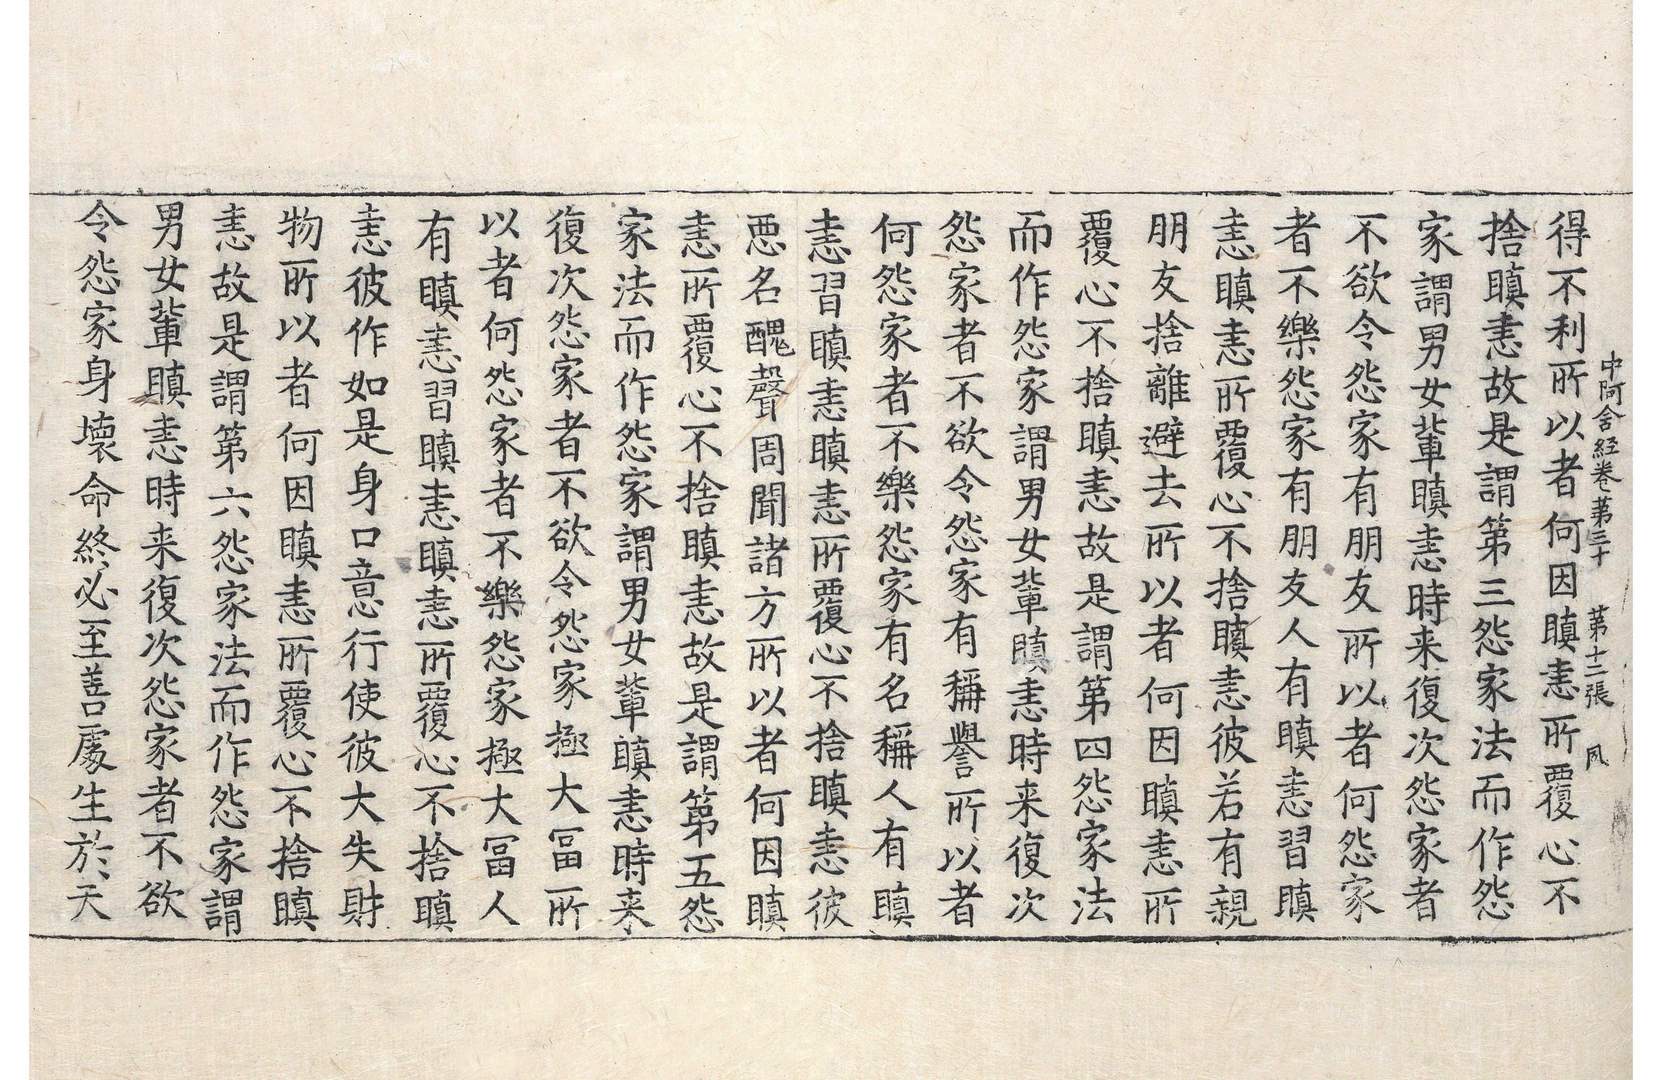 中阿含経卷第三十 第十二張 夙
得不利所以者何因瞋恚所覆心不
捨瞋恚故是謂第三怨家法而作怨
家謂男女輩瞋恚時来復次怨家者
不欲令怨家有朋友所以者何怨家
者不樂怨家有朋友人有瞋恚習瞋
恚瞋恚所覆心不捨瞋恚彼若有親
朋友捨離避去所以者何因瞋恚所
覆心不捨瞋恚故是謂第四怨家法
而作怨家謂男女輩瞋恚時来復次
怨家者不欲令怨家有稱譽所以者
何怨家者不樂怨家有名稱人有瞋
恚習瞋恚瞋恚所覆心不捨瞋恚彼
悪名醜聲周聞諸方所以者何因瞋
恚所覆心不捨瞋恚故是謂第五怨
家法而作怨家謂男女輩瞋恚時来
復次怨家者不欲令怨家極大冨所
以者何怨家者不樂怨家極大冨人
有瞋恚習瞋恚瞋恚所覆心不捨瞋
恚彼作如是身口意行使彼大失財
物所以者何因瞋恚所覆心不捨瞋
恚故是謂第六怨家法而作怨家謂
男女輩瞋恚時来復次怨家者不欲
令怨家身壞命終必至善處生於天